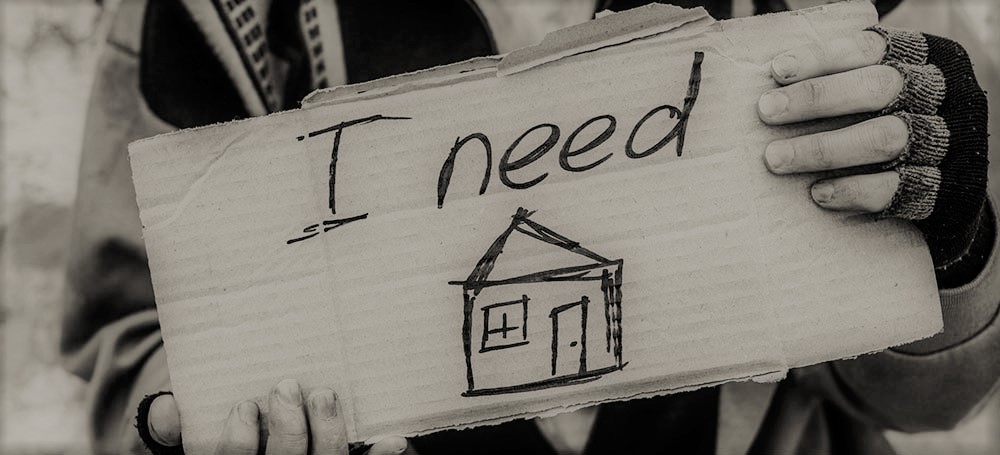 I need